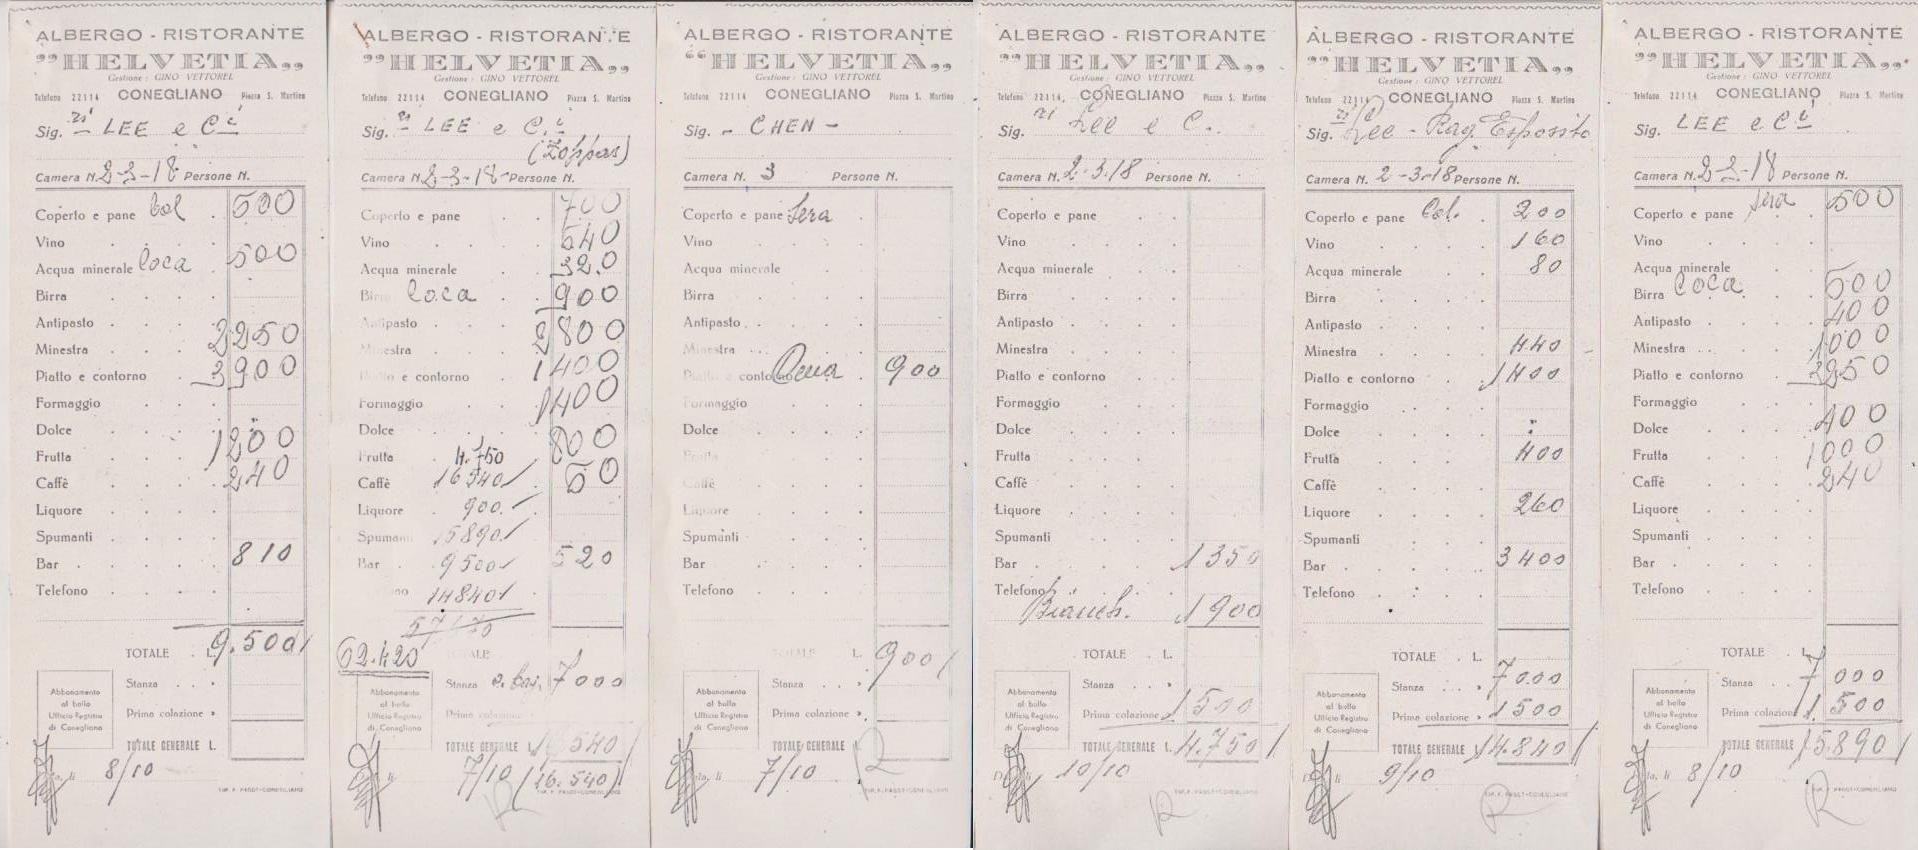 ALBERGO - RISTORANTE
"HELVETIA"
Gestione : GINO VETTOREL
Telefono 22114 CONEGLIANO Piazza S. Martino
Sig.ri LEE e C.i
Camera N. 2-3-18 Persone N.
Coperto e pane Col. 500
Vino
Acqua minerale Coca 500
Birra
Antipasto
Minestra 2250
Piatto e contorno 3900
Formaggio
Dolce
Frutta 1200
Caffè 240
Liquore
Spumanti
Bar 810
Telefono
TOTALE L. 9.500/
Stanza »
Prima colazione »
Abbonamento
al bollo
Ufficio Registro
di Conegliano
TOTALE GENERALE L.
8/10
TIP. F. PAGOT-CONEGLIANO
ALBERGO - RISTORANTE
"HELVETIA"
Gestione : GINO VETTOREL
Telefono 22114 CONEGLIANO Piazza S. Martino
Sig.ri LEE e C.i
(Zoppas)
Camera N. 2-3-18 Persone N.
Coperto e pane 700
Vino 540
Acqua minerale 320
Birra Coca 900
Antipasto 2800
Minestra 1400
Piatto e contorno 1400
Formaggio
Dolce 800
Frutta 4.750 50
Caffè 16540/
Liquore 900.-
Spumanti 15890/
Bar 9500/ 520
14840/
62.420
TOTALE
Stanza 7000
Prima colazione
Abbonamento
al bollo
Ufficio Registro
di Conegliano
TOTALE GENERALE L. 16540/
7/10 (16.540/)
TIP. F. PAGOT-CONEGLIANO
ALBERGO - RISTORANTE
"HELVETIA"
Gestione : GINO VETTOREL
Telefono 22114 CONEGLIANO Piazza S. Martino
Sig. - CHEN -
Camera N. 3 Persone N.
Coperto e pane Sera
Vino
Acqua minerale
Birra
Antipasto
Minestra
Piatto e contorno Cena 900
Formaggio
Dolce
Frutta
Caffè
Liquore
Spumanti
Bar
Telefono
TOTALE L. 900/
Stanza »
Prima colazione »
Abbonamento
al bollo
Ufficio Registro
di Conegliano
TOTALE GENERALE L.
7/10
TIP. F. PAGOT-CONEGLIANO
ALBERGO - RISTORANTE
"HELVETIA"
Gestione : GINO VETTOREL
Telefono 22114 CONEGLIANO Piazza S. Martino
Sig.ri Lee e C..
Camera N. 2-3.18 Persone N.
Coperto e pane
Vino
Acqua minerale
Birra
Antipasto
Minestra
Piatto e contorno
Formaggio
Dolce
Frutta
Caffè
Liquore
Spumanti
Bar 1350
Telefono
Bianch. 1900
TOTALE L.
Stanza »
Prima colazione 1500
Abbonamento
al bollo
Ufficio Registro
di Conegliano
TOTALE GENERALE L. 4.750/
10/10
TIP. F. PAGOT-CONEGLIANO
ALBERGO - RISTORANTE
"HELVETIA"
Gestione : GINO VETTOREL
Telefono 22114 CONEGLIANO Piazza S. Martino
Sig.ri Lee - Rag. Esposito
Camera N. 2-3-18 Persone N.
Coperto e pane Col. 200
Vino 160
Acqua minerale 80
Birra
Antipasto
Minestra 440
Piatto e contorno 1400
Formaggio
Dolce
Frutta 400
Caffè
Liquore 260
Spumanti
Bar 3400
Telefono
TOTALE L.
Stanza » 7000
Prima colazione » 1500
Abbonamento
al bollo
Ufficio Registro
di Conegliano
TOTALE GENERALE 14.840/
9/10
TIP. F. PAGOT-CONEGLIANO
ALBERGO - RISTORANTE
"HELVETIA"
Gestione : GINO VETTOREL
Telefono 22114 CONEGLIANO Piazza S. Martino
Sig. LEE e C.i
Camera N. 2-3-18 Persone N.
Coperto e pane Sera 500
Vino
Acqua minerale
Birra Coca 500
Antipasto 400
Minestra 1000
Piatto e contorno 3250
Formaggio
Dolce 400
Frutta 1000
Caffè 240
Liquore
Spumanti
Bar
Telefono
TOTALE L.
Stanza 7000
Prima colazione 1.500
Abbonamento
al bollo
Ufficio Registro
di Conegliano
TOTALE GENERALE 15.890/
8/10
TIP. F. PAGOT-CONEGLIANO